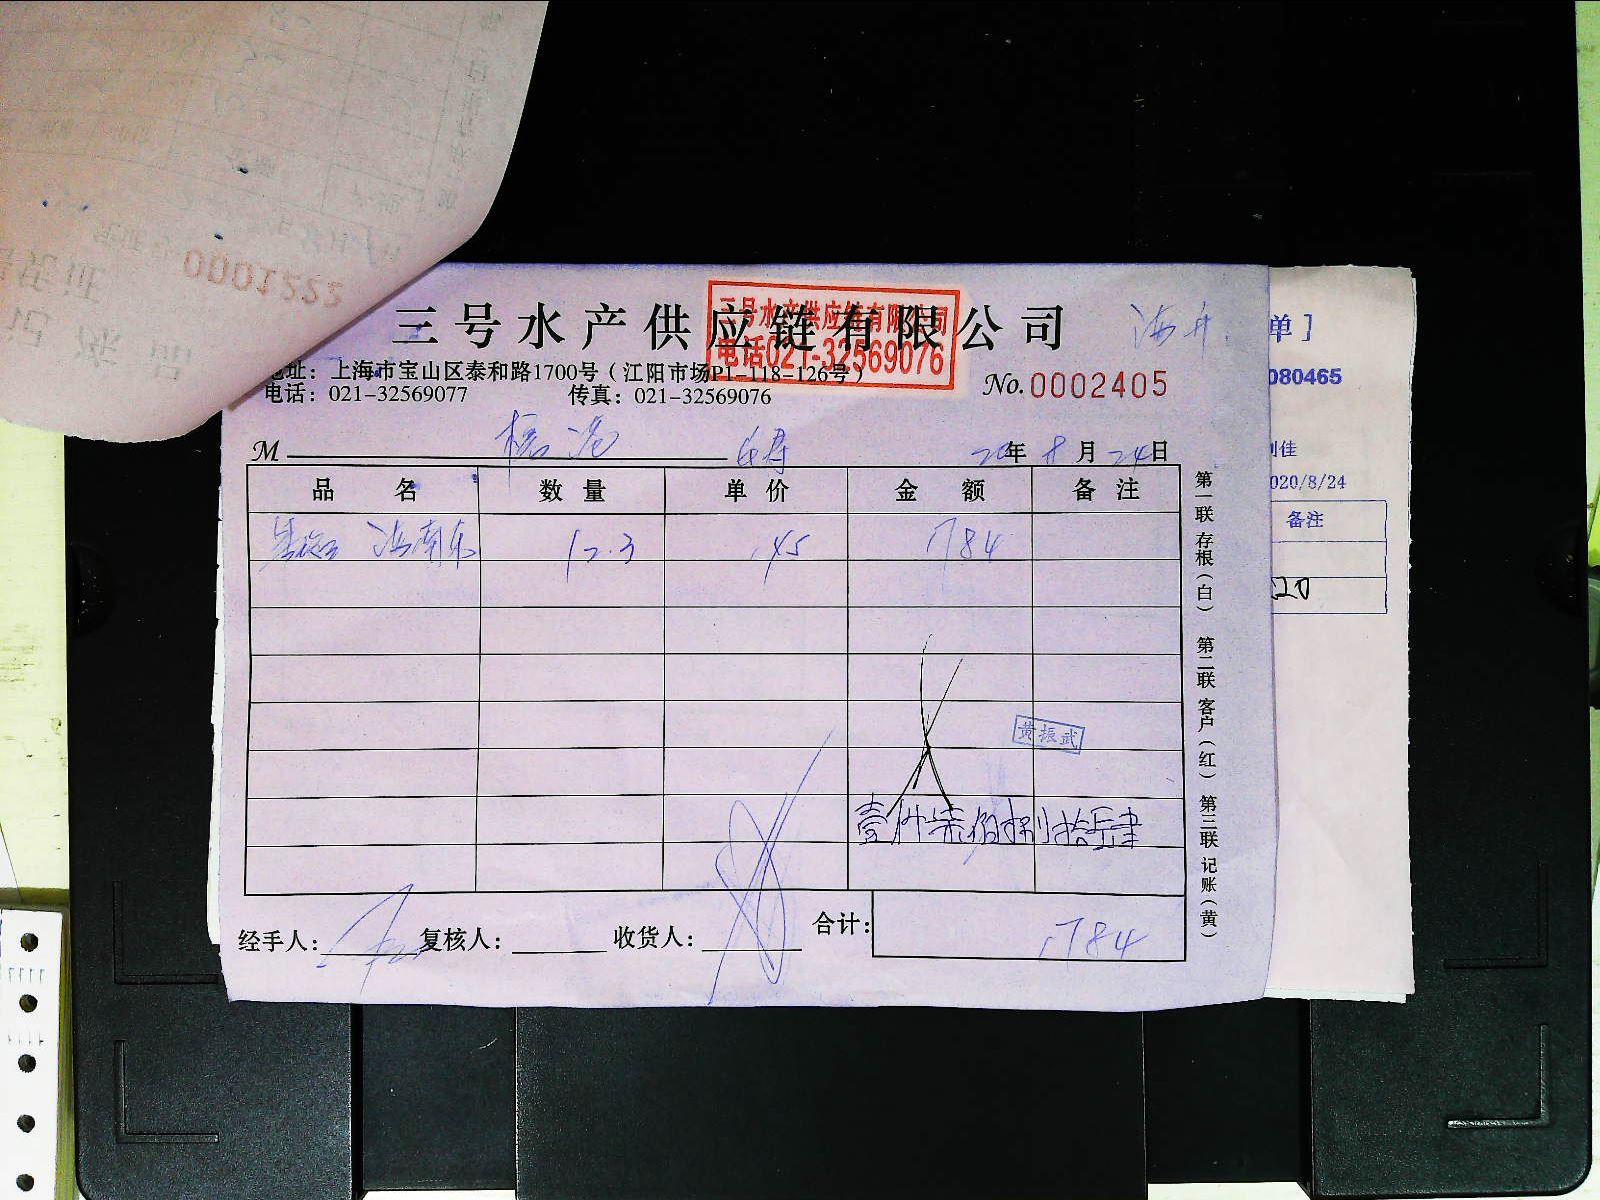 0001222
三号水产供应链有限公司
三号水产供应链有限公司
电话021-32569076
单］
地址：上海市宝山区泰和路1700号（江阳市场P1-118-126号）
电话：021-32569077 传真：021-32569076
No.0002405
080465
M 20年 8月 24日
刘佳
2020/8/24
品名 数量 单价 金额 备注
备注
海南东 12.3 145 1784
20
黄振武
壹仟柒佰捌拾肆
经手人： 复核人： 收货人： 合计： 1784
第一联 存根（白） 第二联 客户（红） 第三联 记账（黄）